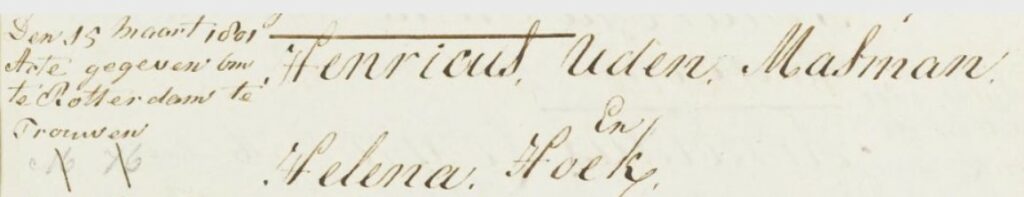 Den 15 maart 1801
Acte gegeven om
te Rotterdam te
Trouwen
Henricus. Uden. Masman.
En
Helena. Hoek.